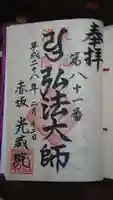 奉拝
第八十一番
弘法大師
平成二十八年二月十二日
赤坂
光蔵院